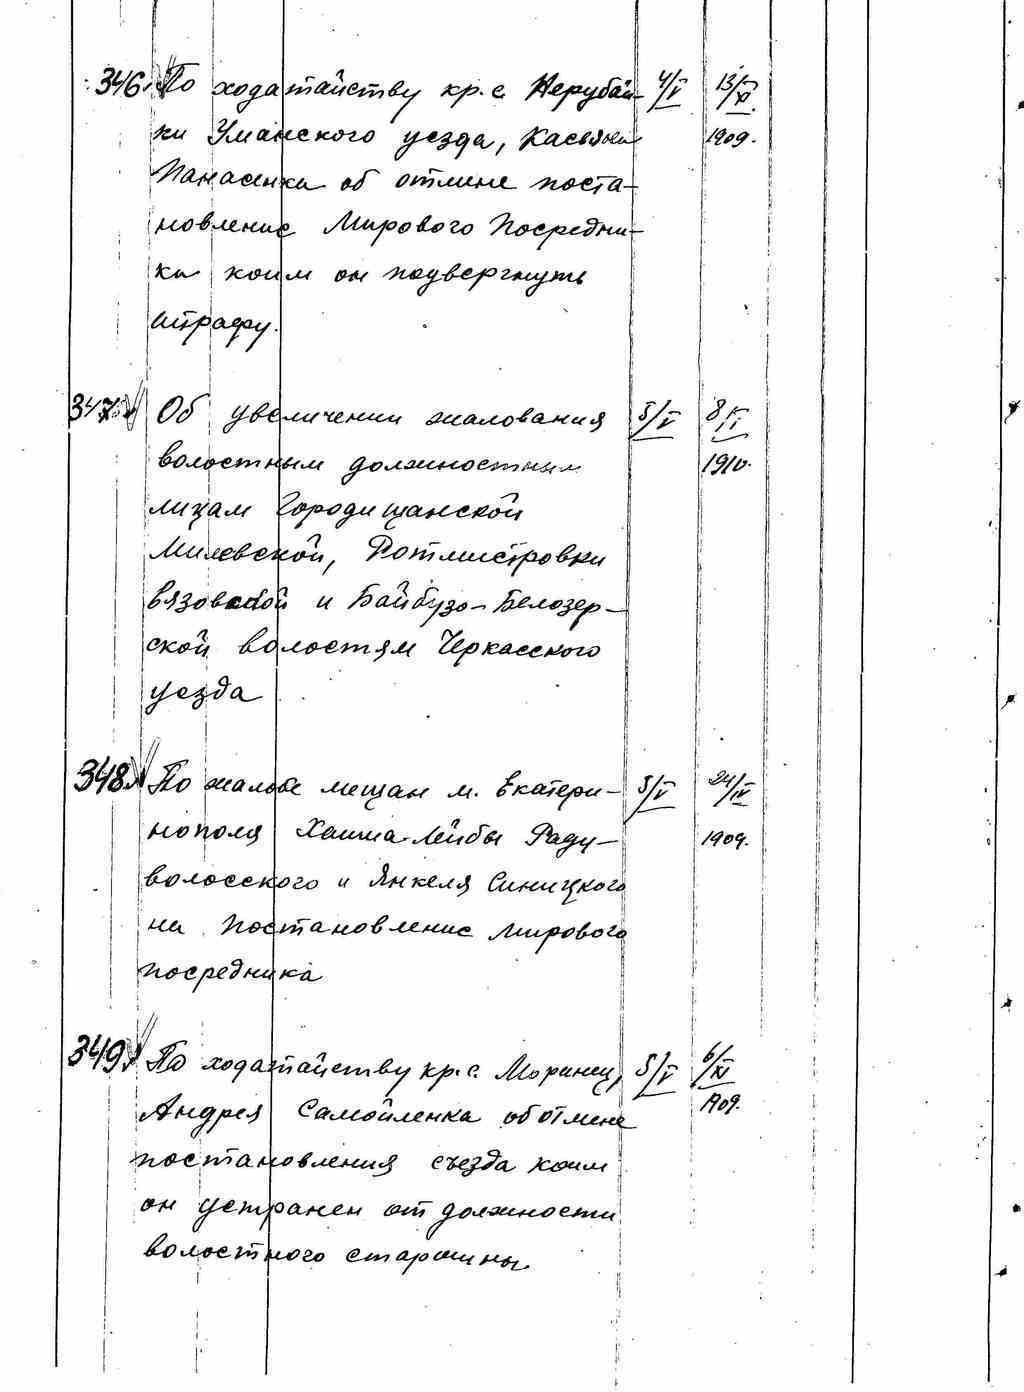 346. По ходатайству кр. с. Нерубай- 4/V 13/XI
ки Уманского уезда, Касьяна 1909.
Панасенка об отмене поста-
новление Мирового Посредни-
ка коим он подвергнуть
штрафу.
347. Об увеличении жалования 5/V 8/VI
волостным должностным 1910.
лицам Городищанской
Милевской, Ротмистровки
вязовской и Байбузо-Белозер-
ской волостям Черкасского
уезда
348. По жалобе мещан м. Екатери- 5/V 24/IV
нополя Хаима-Лейбы Раду- 1909.
волосского и Янкеля Синицкого
на постановление мирового
посредника
349. По ходатайству кр. с. Моринец, 5/V 6/XI
Андрея Самойленка об отмене 1909.
постановления съезда коим
он устранен от должности
волостного старшины.